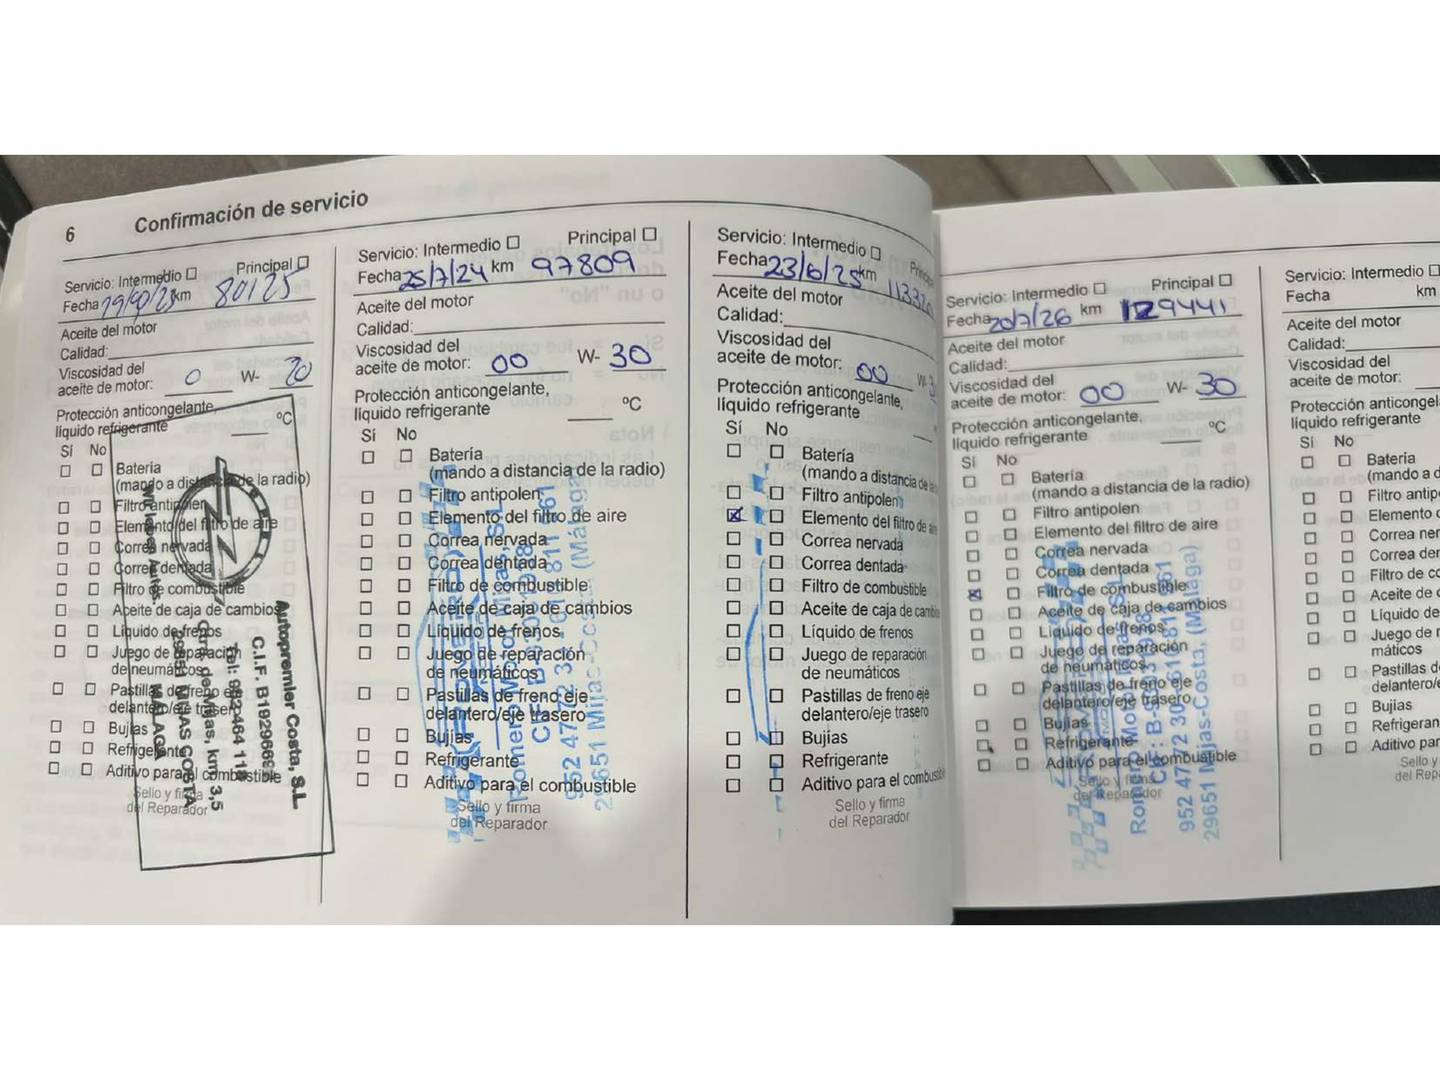 6 Confirmación de servicio
Servicio: Intermedio Principal
Fecha km 80125
Aceite del motor
Calidad:
Viscosidad del
aceite de motor: 0 W-
Protección anticongelante,
líquido refrigerante °C
Sí No
Batería
(mando a distancia de la radio)
Filtro antipolen
Elemento del filtro de aire
Correa nervada
Correa dentada
Filtro de combustible
Aceite de caja de cambios
Líquido de frenos
Juego de reparación
de neumáticos
Pastillas de freno eje
delantero/eje trasero
Bujías
Refrigerante
Aditivo para el combustible
Sello y firma
del Reparador
OPEL
Autopremier Costa, S.L
C.I.F. B1929669
Tel: 952 464 11
Ctra. de Mijas, km 3,5
29651 MIJAS COSTA
MÁLAGA
Servicio: Intermedio Principal
Fecha 25/7/24 km 97809
Aceite del motor
Calidad:
Viscosidad del
aceite de motor: 00 W- 30
Protección anticongelante,
líquido refrigerante °C
Sí No
Batería
(mando a distancia de la radio)
Filtro antipolen
Elemento del filtro de aire
Correa nervada
Correa dentada
Filtro de combustible
Aceite de caja de cambios
Líquido de frenos
Juego de reparación
de neumáticos
Pastillas de freno eje
delantero/eje trasero
Bujías
Refrigerante
Aditivo para el combustible
Sello y firma
del Reparador
Romero Motor Mijas, SL
29651 Mijas-Costa (Málaga)
Servicio: Intermedio
Fecha 23/6/25 km
Aceite del motor
Calidad:
Viscosidad del
aceite de motor: 00
Protección anticongelante,
líquido refrigerante
Sí No
Batería
(mando a distancia de la
Filtro antipolen
Elemento del filtro de
Correa nervada
Correa dentada
Filtro de combustible
Aceite de caja de
Líquido de frenos
Juego de reparación
de neumáticos
Pastillas de freno eje
delantero/eje trasero
Bujías
Refrigerante
Aditivo para el combustible
Sello y firma
del Reparador
Servicio: Intermedio Principal
Fecha 20/7/26 km 129441
Aceite del motor
Calidad:
Viscosidad del
aceite de motor: 00 W- 30
Protección anticongelante,
líquido refrigerante °C
Sí No
Batería
(mando a distancia de la radio)
Filtro antipolen
Elemento del filtro de aire
Correa nervada
Correa dentada
Filtro de combustible
Aceite de caja de cambios
Líquido de frenos
Juego de reparación
de neumáticos
Pastillas de freno eje
delantero/eje trasero
Bujías
Refrigerante
Aditivo para el combustible
Sello y firma
del Reparador
29651 Mijas-Costa, (Málaga)
Servicio: Intermedio
Fecha km
Aceite del motor
Calidad:
Viscosidad del
aceite de motor:
Protección
líquido refrigerante
Sí No
Batería
(mando a
Filtro
Elemento
Correa
Correa
Filtro de
Aceite de
Líquido de
Juego de
máticos
Pastillas
Bujías
Aditivo
Sello y